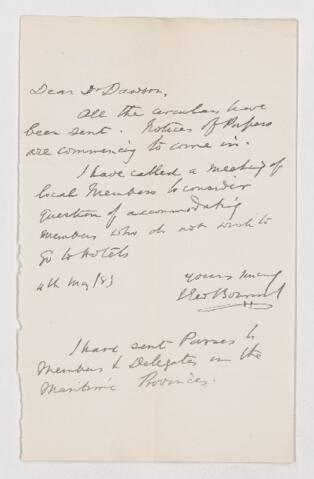 Dear Dr Dawson,
All the circulars have
been sent. Notices of Papers
are commencing to come in.
I have called a meeting of
local Members to consider
question of accommodating
members who do not wish to
go to Hotels
4th May/83
yours truly
I have sent Passes to
Members & Delegates in the
Maritime Provinces.